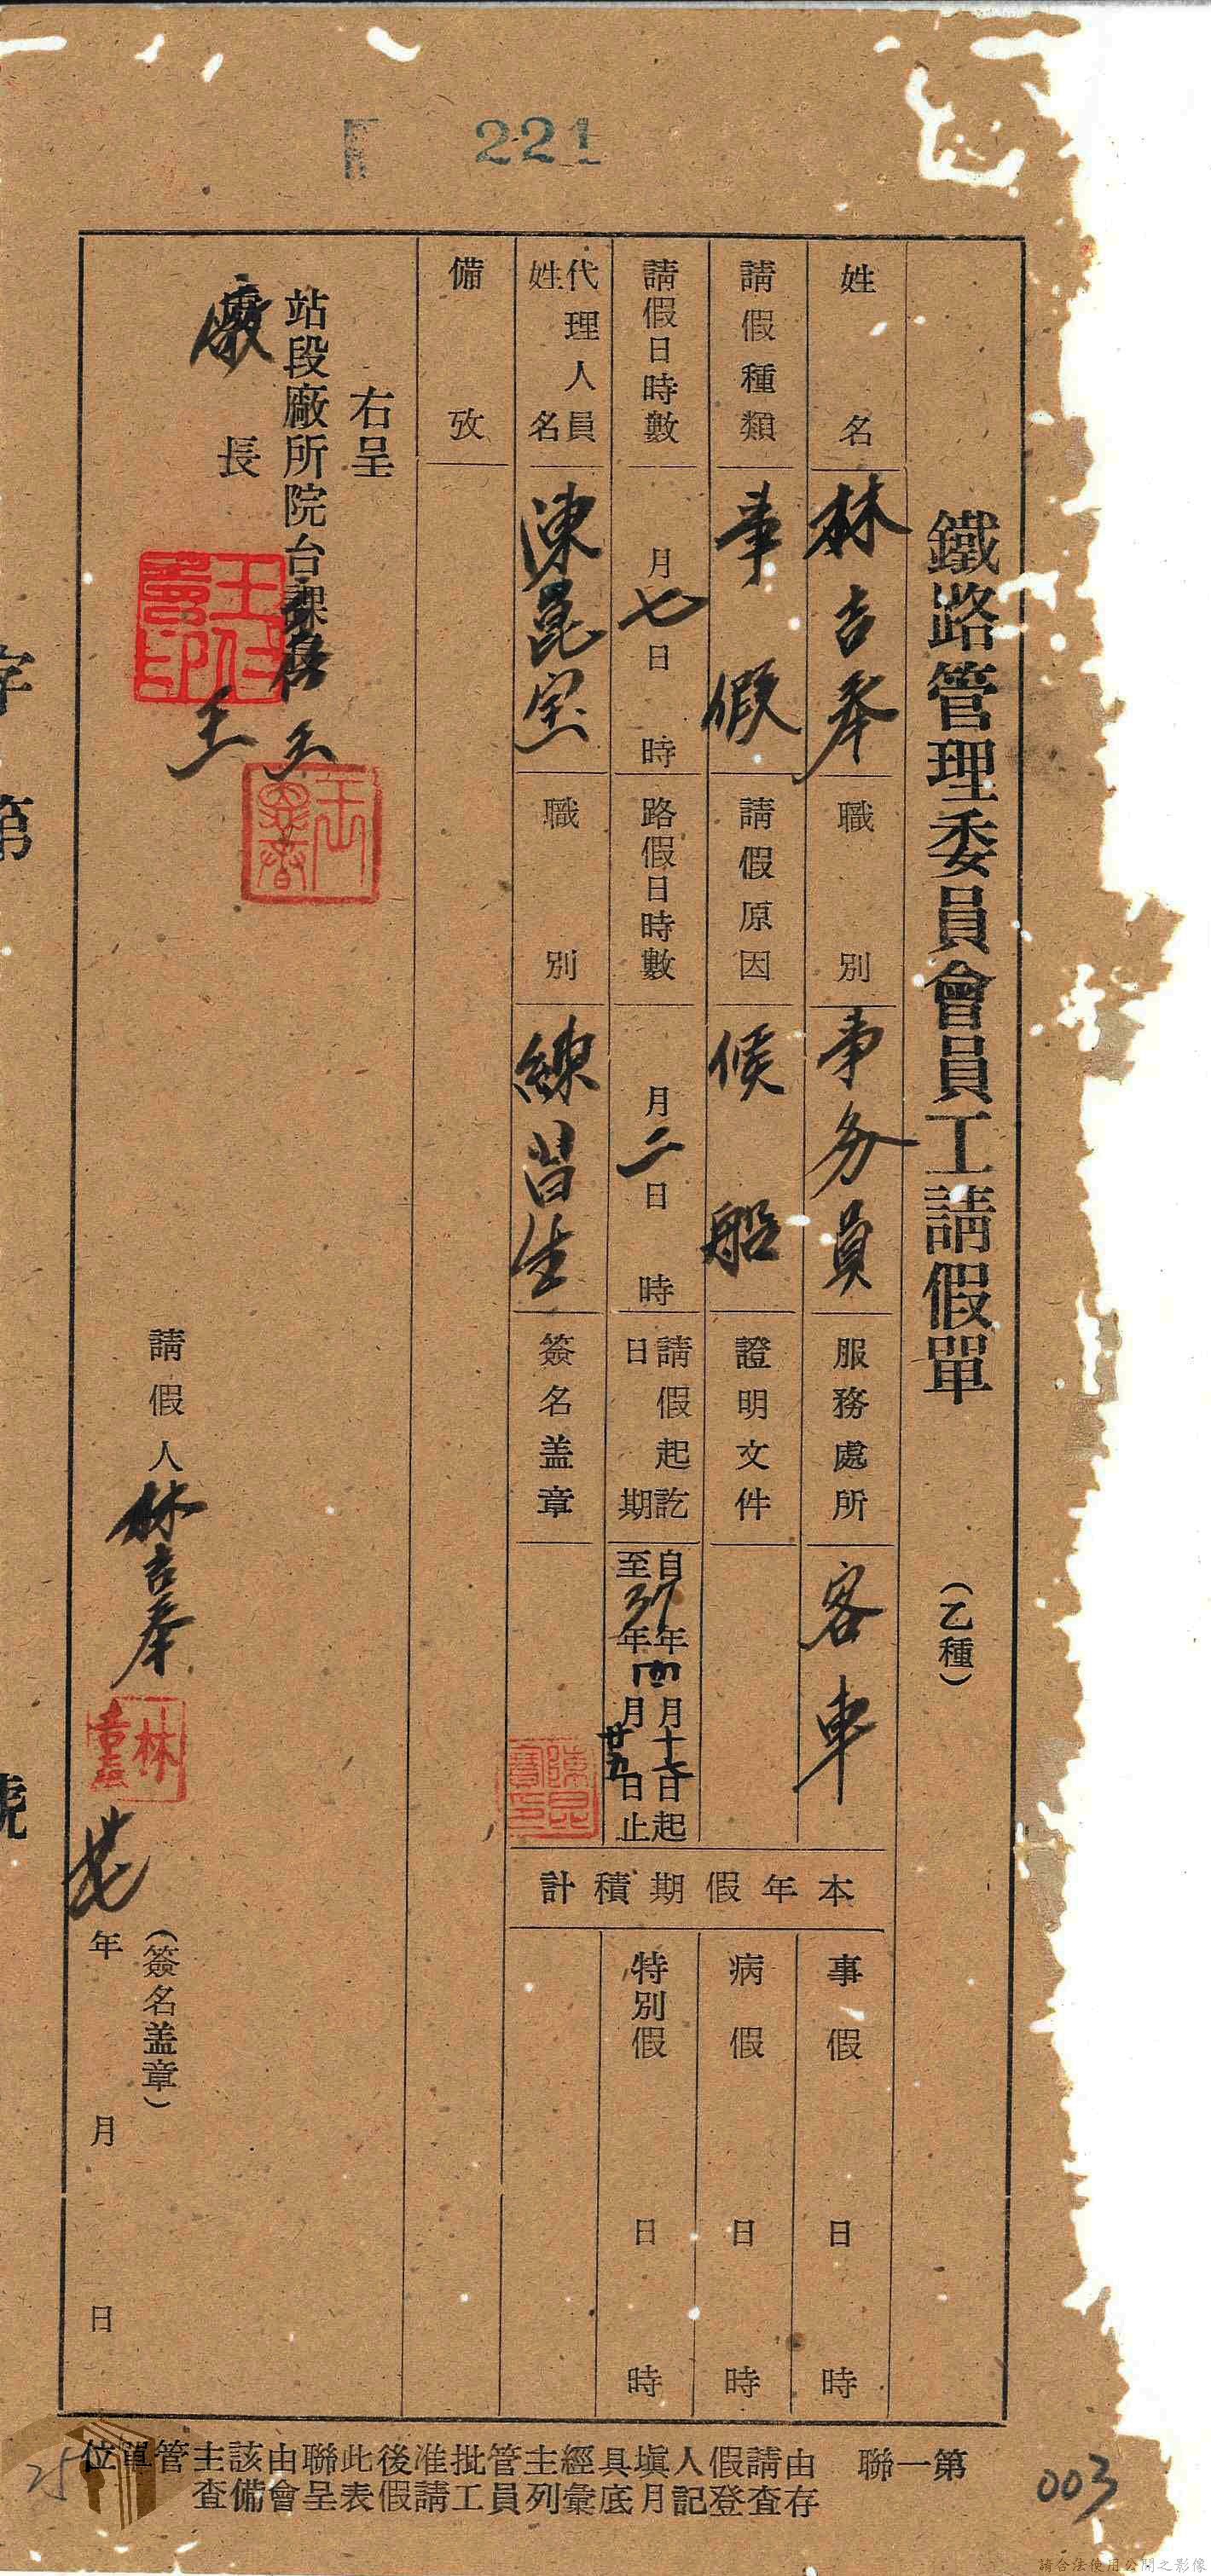 221
鐵路管理委員會員工請假單 (乙種)
姓名 林吉奉 職別 事务員 服務處所 客車
請假種類 事假 請假原因 候船 證明文件
請假日時數 月七日時 路假日時數 月二日時 請假起訖日期 自37年四月十七日起
至37年四月廿九日止
代理人員姓名 陳昆宝 職別 練習生 簽名盖章
備攷
本年假期積計
事假 日 時
病假 日 時
特別假 日 時
右呈
站段廠所院台課
廠長
王
請假人 林吉奉
(簽名盖章)
年 月 日
字第 號
第一聯
由請假人塡具經主管批准後此聯由該主管單位
存査登記月底彙列員工請假表呈會備査
003
25
請合法使用公開之影像